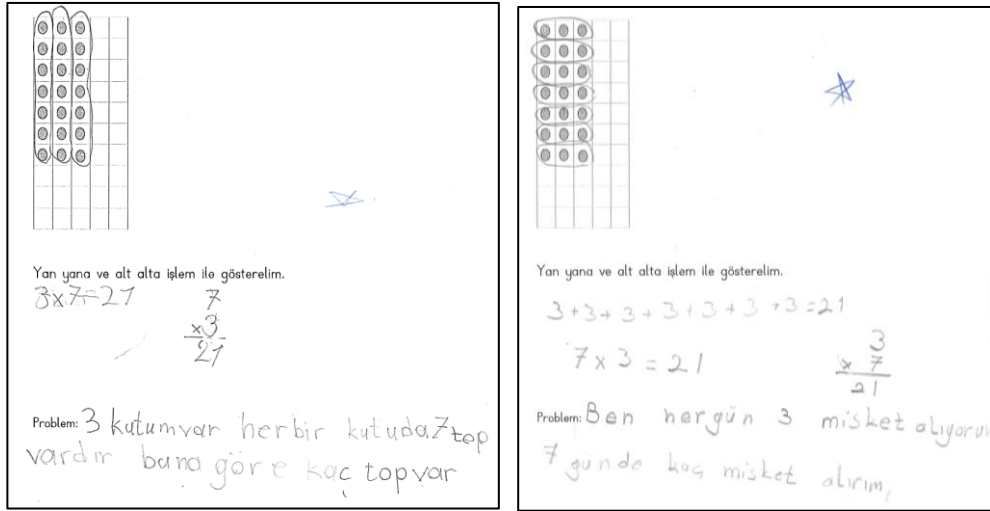 Yan yana ve alt alta işlem ile gösterelim.
3x7=21
7
x3
21
Problem: 3 kutumvar herbir kutuda 7 top
vardır buna göre kaç topvar
Yan yana ve alt alta işlem ile gösterelim.
3+3+3+3+3+3+3=21
7x3=21
3
x 7
21
Problem: Ben hergün 3 misket alıyorum
7 günde kaç misket alırım,